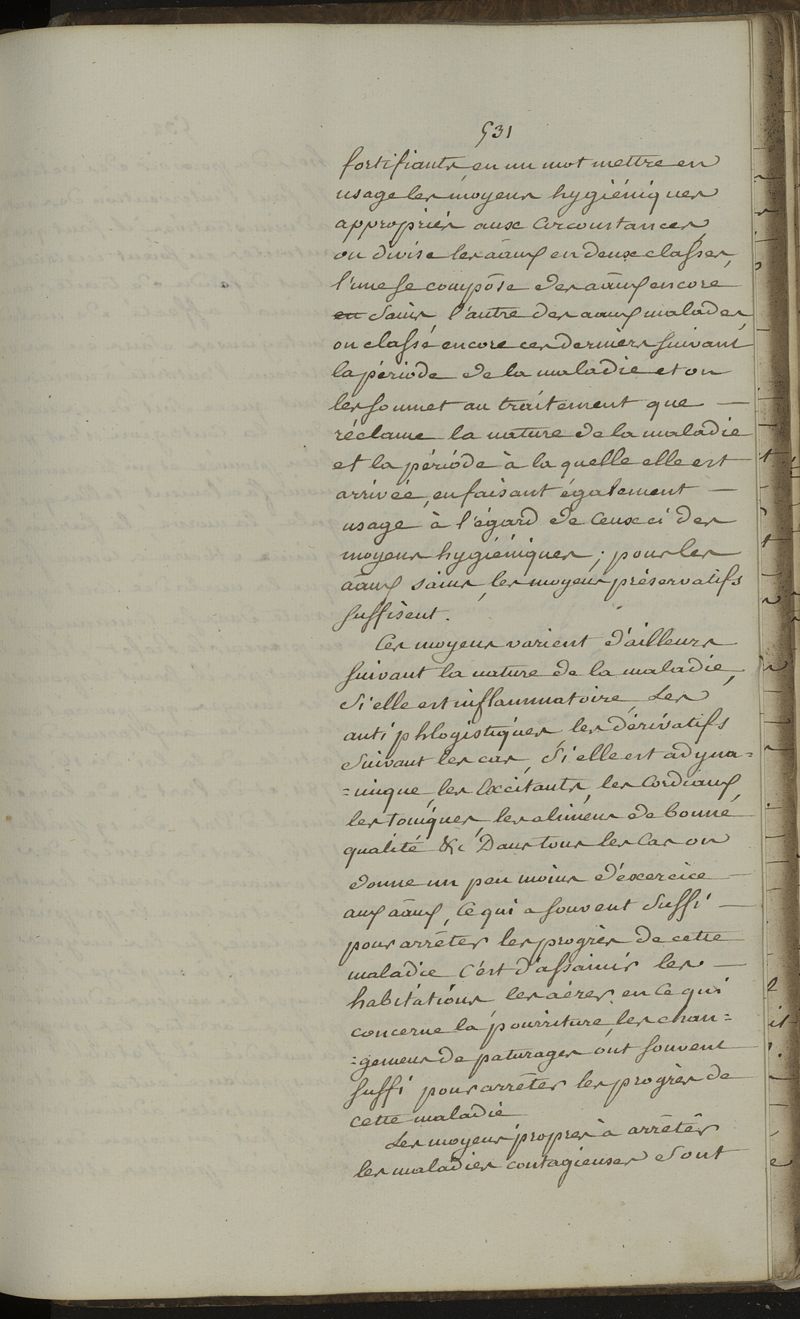 531
fortifiants, en un mot mettre en
usage les moyens hygiéniques
appropriés aux circonstances,
on divise les aãux en deux classes,
l'une se compose des aãux encore
en sains, l'autre des aãux malades,
on classé encore ces derniers suivant
la période de la maladie et on
les soumet au traitement que —
réclame la nature de la maladie
et la période à la quelle elle est
arrivée, en faisant également —
usage à l'égard de ceux ci des
moyens hygiéniques; pour les
aãux sains, les moyens préservatifs
suffisent.
Ces moyens varient d'ailleurs
suivant la nature de la maladie,
Si elle est inflammatoire, Les
antiphlogistiques, les dérivatifs
suivant les cas, Si elle est adyna=
=mique, les Excitants, les Cordiaux,
les toniques, les alimens de bonne
qualité &c Dans tous les Cas on
donne un peu moins d'éxercice —
aux aãux, Ce qui a souvent suffi —
pour arrêter les progrès de cette
maladie C'est d'assainir les —
habitations les aérer, en Ce qui
concerne la pourriture, les chan=
=gemens de paturages ont souvent
suffi pour arrêter les progrès de
cette maladie
Les moyens propres à arrêter
les maladies contagieuses Sont